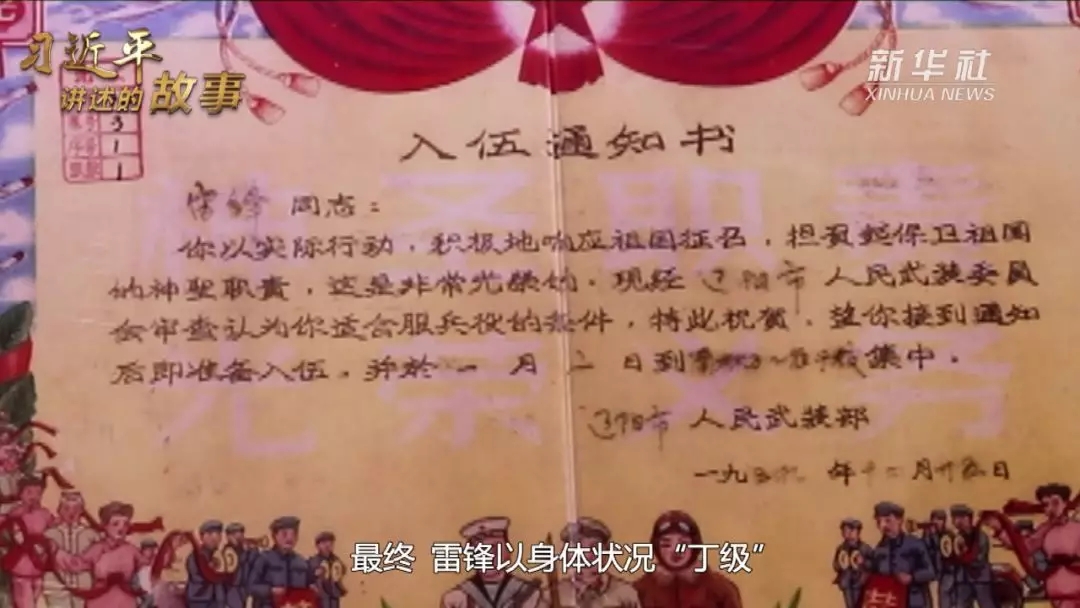 习近平
讲述的故事
新华社
XINHUA NEWS
3
1
1
入伍通知书
雷锋 同志：
你以实际行动，积极地响应祖国征召，担负起保卫祖国
的神圣职责，这是非常光荣的。现经 辽阳市 人民武装委员
会审查认为你适合服兵役的条件，特此祝贺，望你接到通知
后即准备入伍，并於 一 月 二 日到 集中。
辽阳市 人民武装部
一九五九 年十二月 日
神圣职责
光荣义务
最终 雷锋以身体状况“丁级”